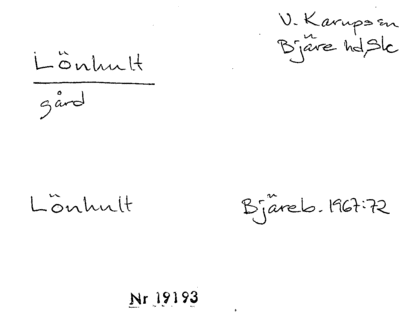 V. Karupsen
Bjäre hd, Sk
Lönhult
gård
Lönhult
Bjäreb. 1967:72
Nr 19193